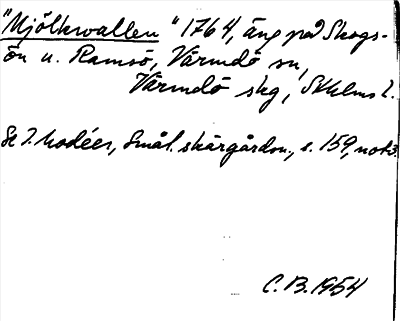 "Mjölkvallen" 1764, äng på Skogs-
ön u. Ramsö, Värmdö sn,
Värmdö skg, Sthlms l.
Se I. Modéer, Smål. skärgårdsn., s. 159, not 3.
C.B. 1954